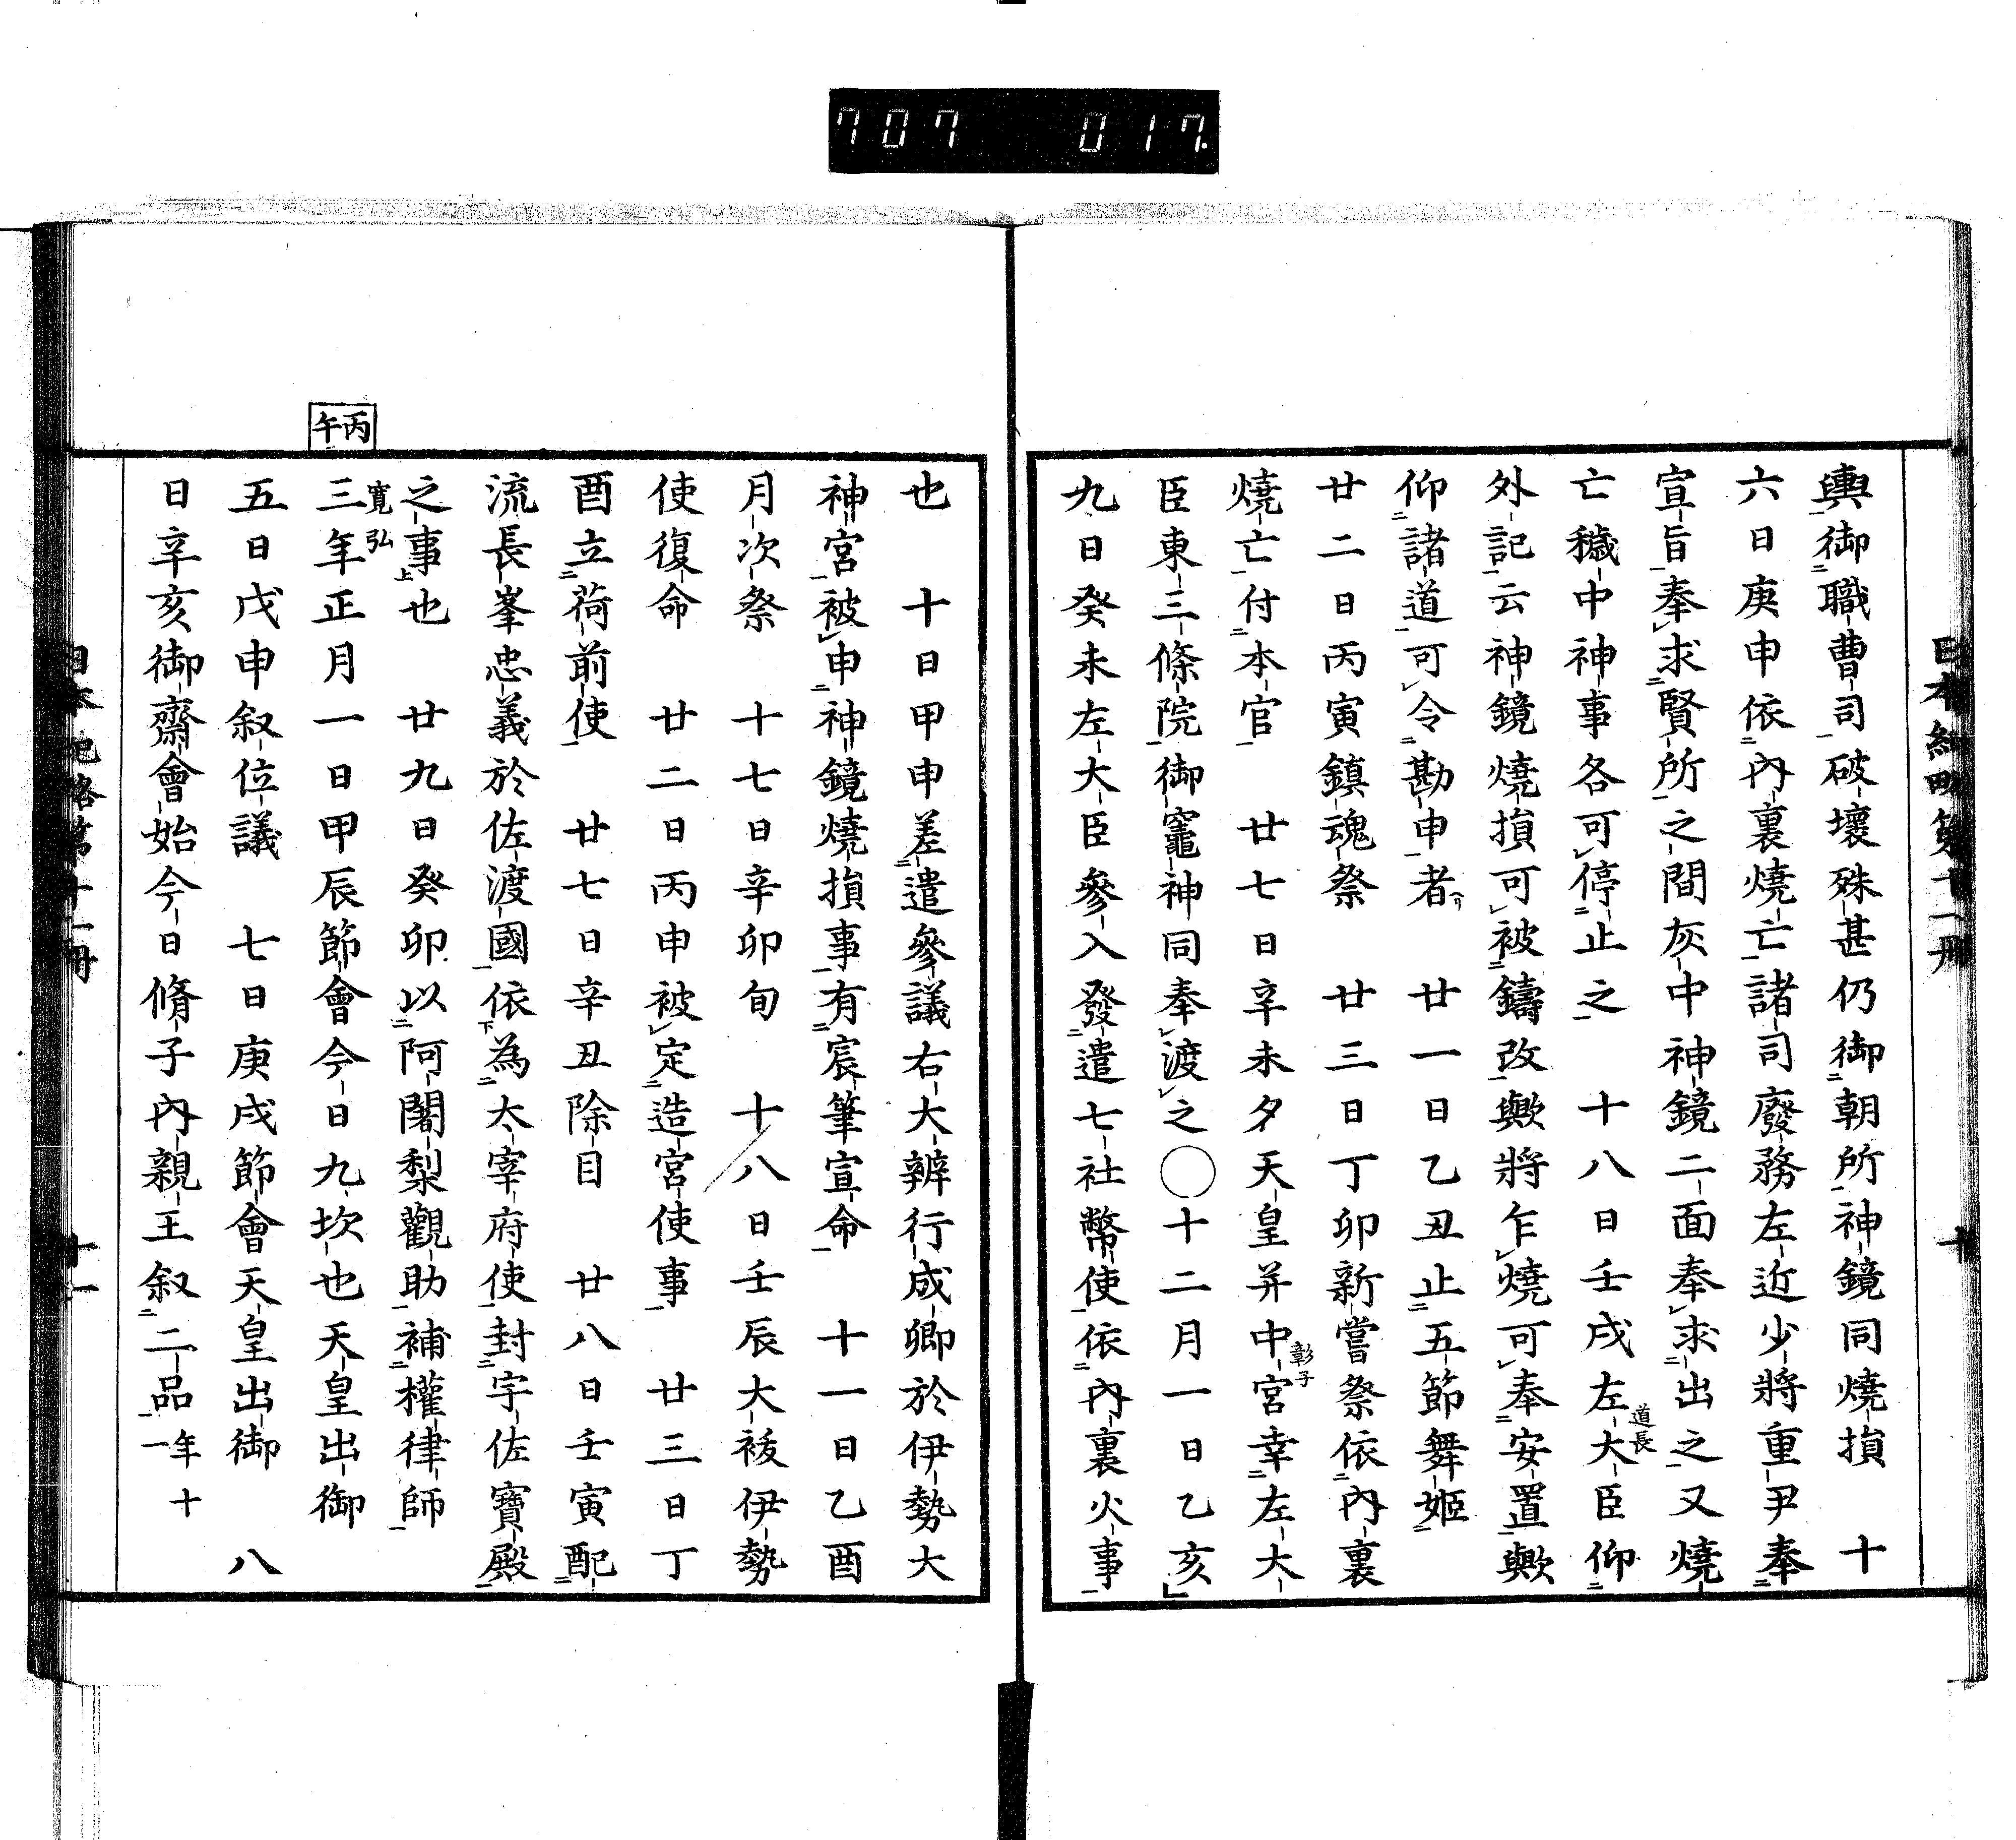 707 017.
日本紀略第十一冊 十
輿御職曹司破壞殊甚仍御朝所神鏡同燒損 十
六日庚申依內裏燒亡諸司廢務左近少將重尹奉
宣旨奉求賢所之間灰中神鏡二面奉求出之又燒
亡穢中神事各可停止之 十八日壬戌左大臣仰
道長
外記云神鏡燒損可被鑄改歟將乍燒可奉安置歟
仰諸道可令勘申者 廿一日乙丑止五節舞姬
廿二日丙寅鎮魂祭 廿三日丁卯新嘗祭依內裏
燒亡付本官 廿七日辛未夕天皇并中宮幸左大
彰子
臣東三條院御竈神同奉渡之○十二月一日乙亥
九日癸未左大臣參入發遣七社幣使依內裏火事
也 十日甲申差遣參議右大辨行成卿於伊勢大
神宮被申神鏡燒損事有宸筆宣命 十一日乙酉
月次祭 十七日辛卯旬 十八日壬辰大祓伊勢
使復命 廿二日丙申被定造宮使事 廿三日丁
酉立荷前使 廿七日辛丑除目 廿八日壬寅配
流長峯忠義於佐渡國依為太宰府使封宇佐寶殿
之事也 廿九日癸卯以阿闍梨觀助補權律師
丙午
寬弘
三年正月一日甲辰節會今日九坎也天皇出御
五日戊申叙位議 七日庚戌節會天皇出御 八
日辛亥御齋會始今日脩子內親王叙二品年十一
日本紀略第十一冊 十一